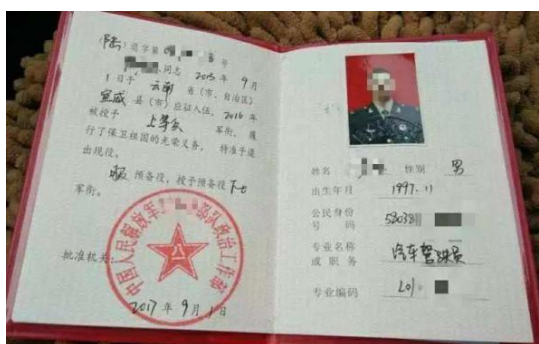 (陆)退字第 号
同志 2015 年 9 月
1 日于 云南 省(市、自治区)
宣威 县(市)应征入伍,2016 年
被授予 上等兵 军衔,履
行了保卫祖国的光荣义务,特准予退
出现役。
服 预备役,授予预备役 下士
军衔。
批准机关:
中国人民解放军 部队政治工作部
八一
2017 年 9 月 1 日
姓名 性别 男
出生年月 1997.11
公民身份
号码 53038
专业名称 汽车驾驶员
或职务
专业编码 201